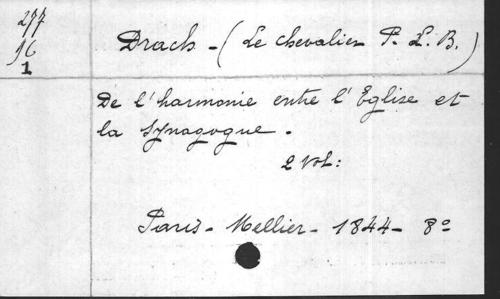 277
96
1
Drach - (Le chevalier P. L. B.)
De l'harmonie entre l'Eglise et
la Synagogue.
2 Vol:
Paris - Mellier - 1844 - 8º